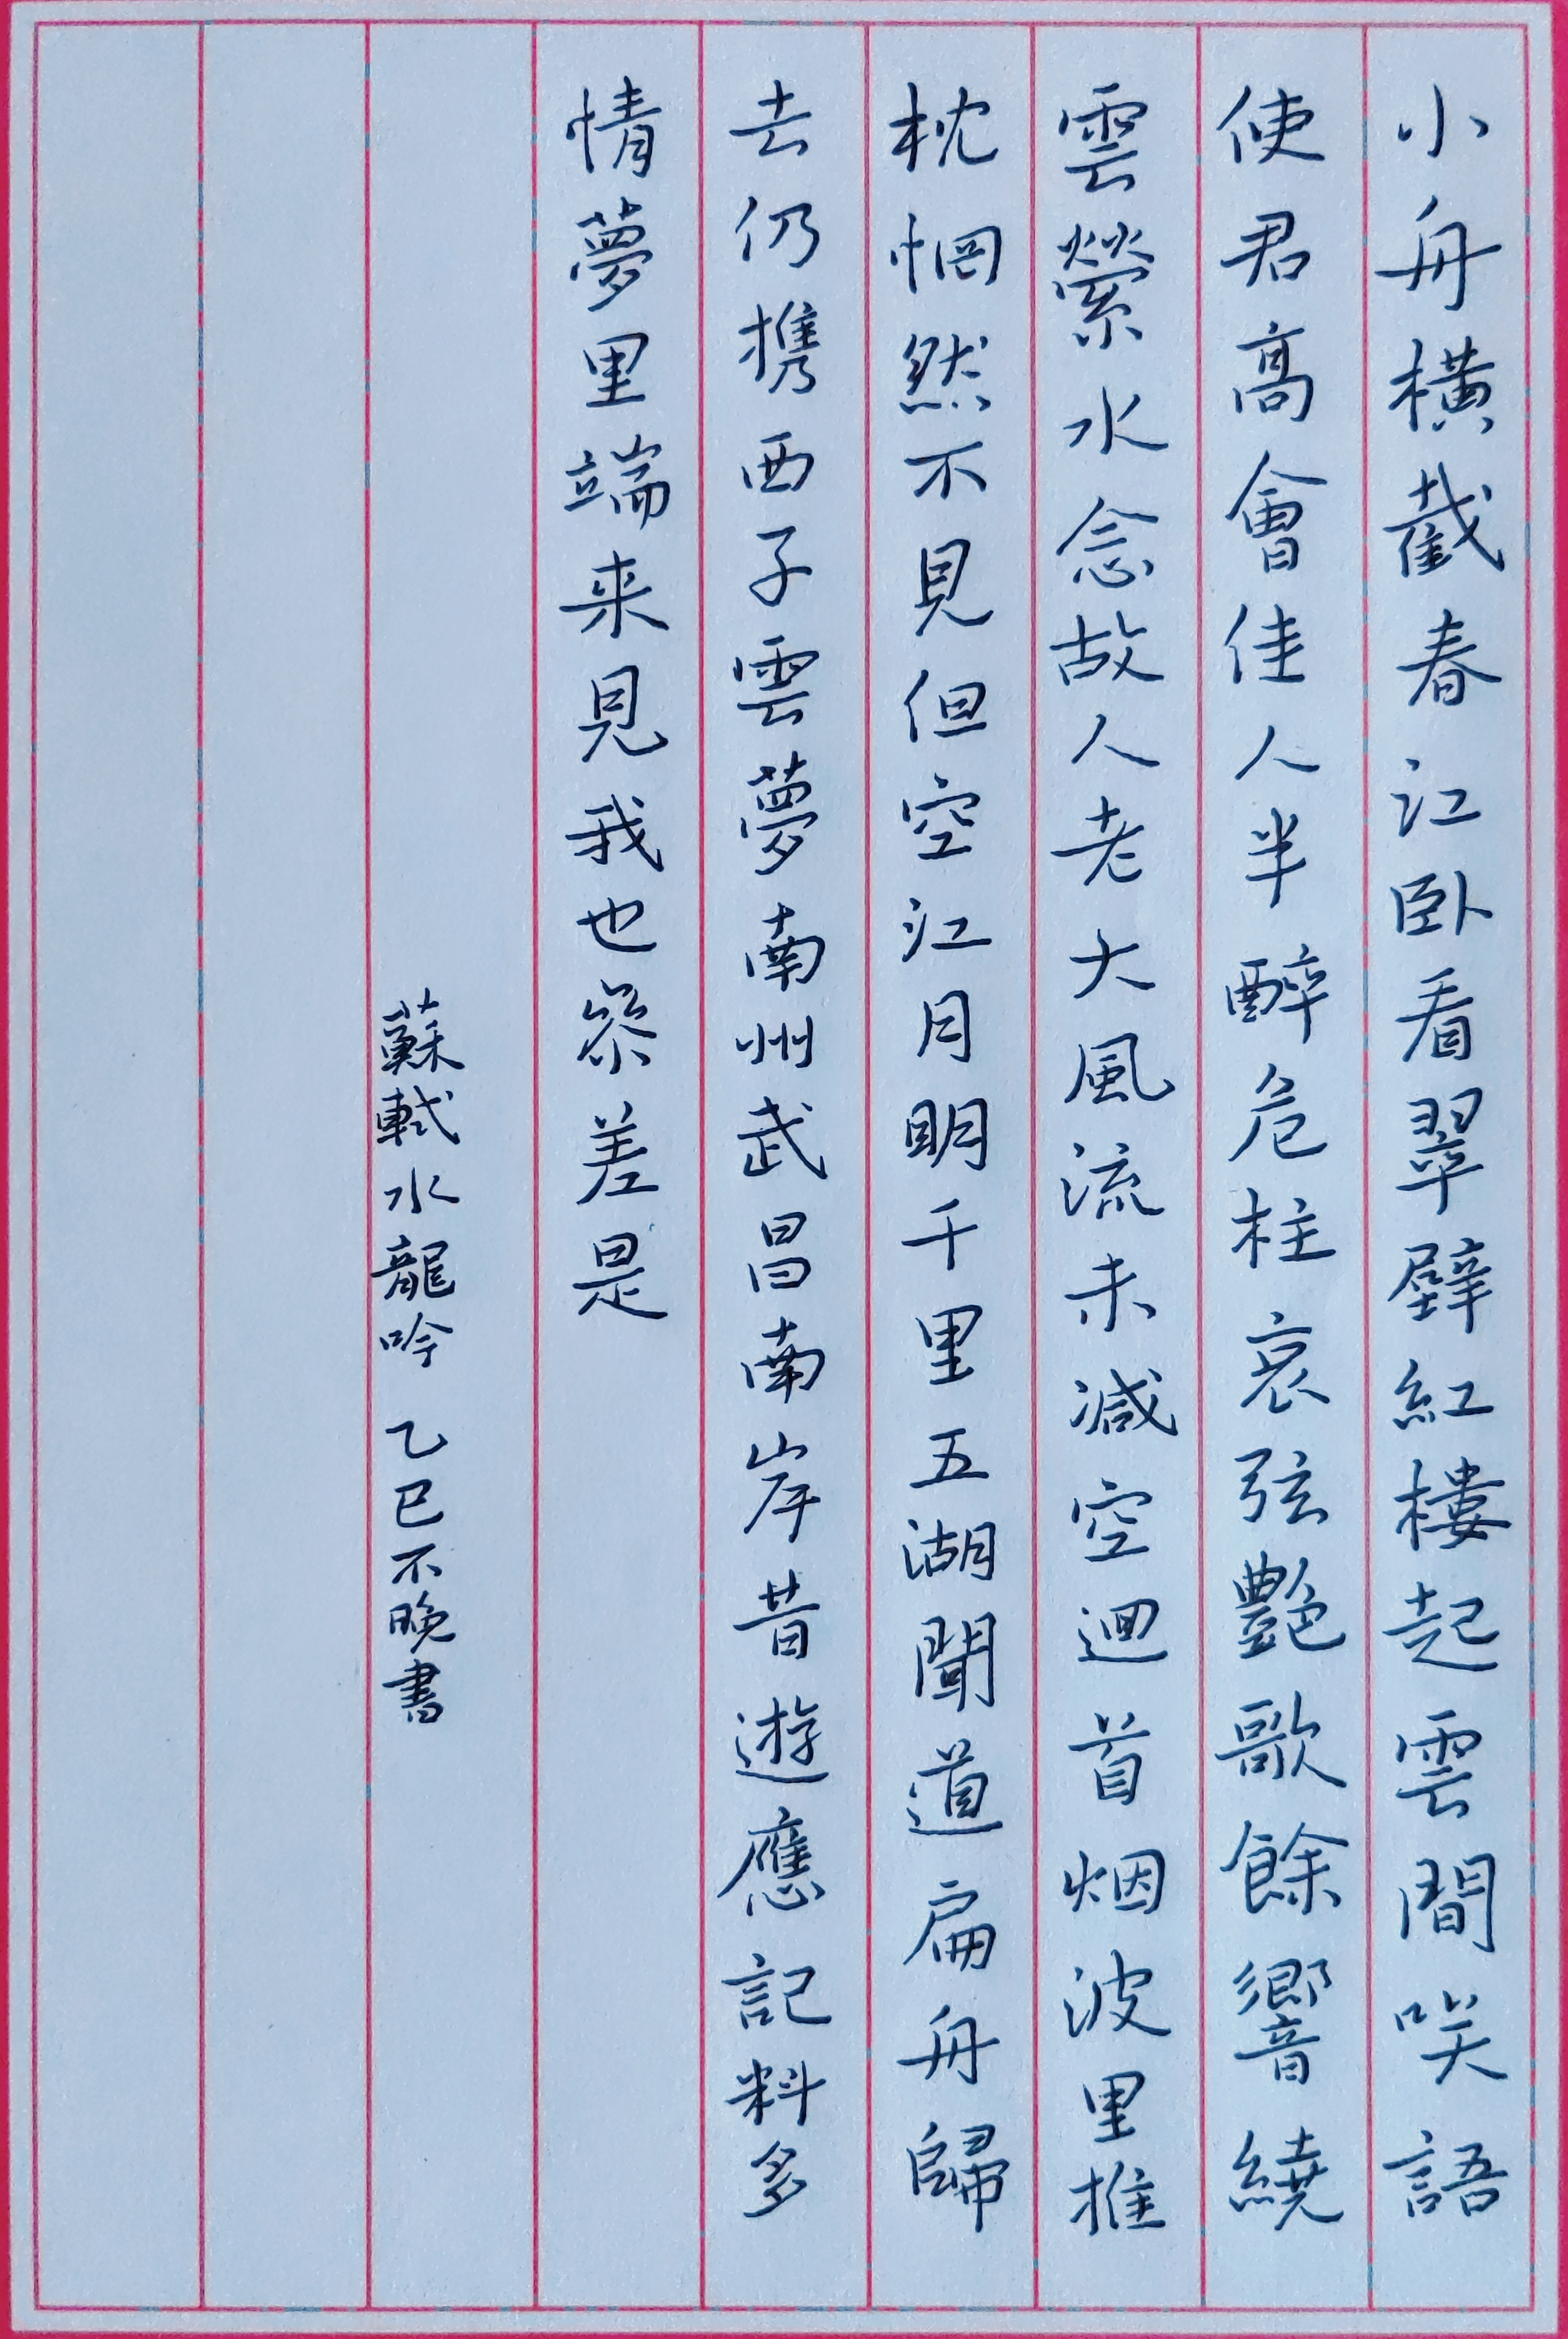 小舟橫截春江卧看翠壁紅樓起雲間咲語
使君高會佳人半醉危柱哀弦艷歌餘響繞
雲縈水念故人老大風流未減空迴首烟波里推
枕惘然不見但空江月明千里五湖聞道扁舟歸
去仍携西子雲夢南州武昌南岸昔遊應記料多
情夢里端来見我也參差是
蘇軾水龍吟 乙巳不晚書